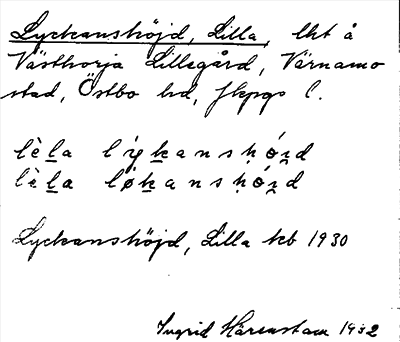 Lyckanshöjd, Lilla, lht å
Västhorja Lillegård, Värnamo
stad, Östbo hd, Jkpgs l.
lè̱la lýḵanshó̱jd
lè̱la lǿḵanshó̱jd
Lyckanshöjd, Lilla kb 1930
Ingrid Härenstam 1932